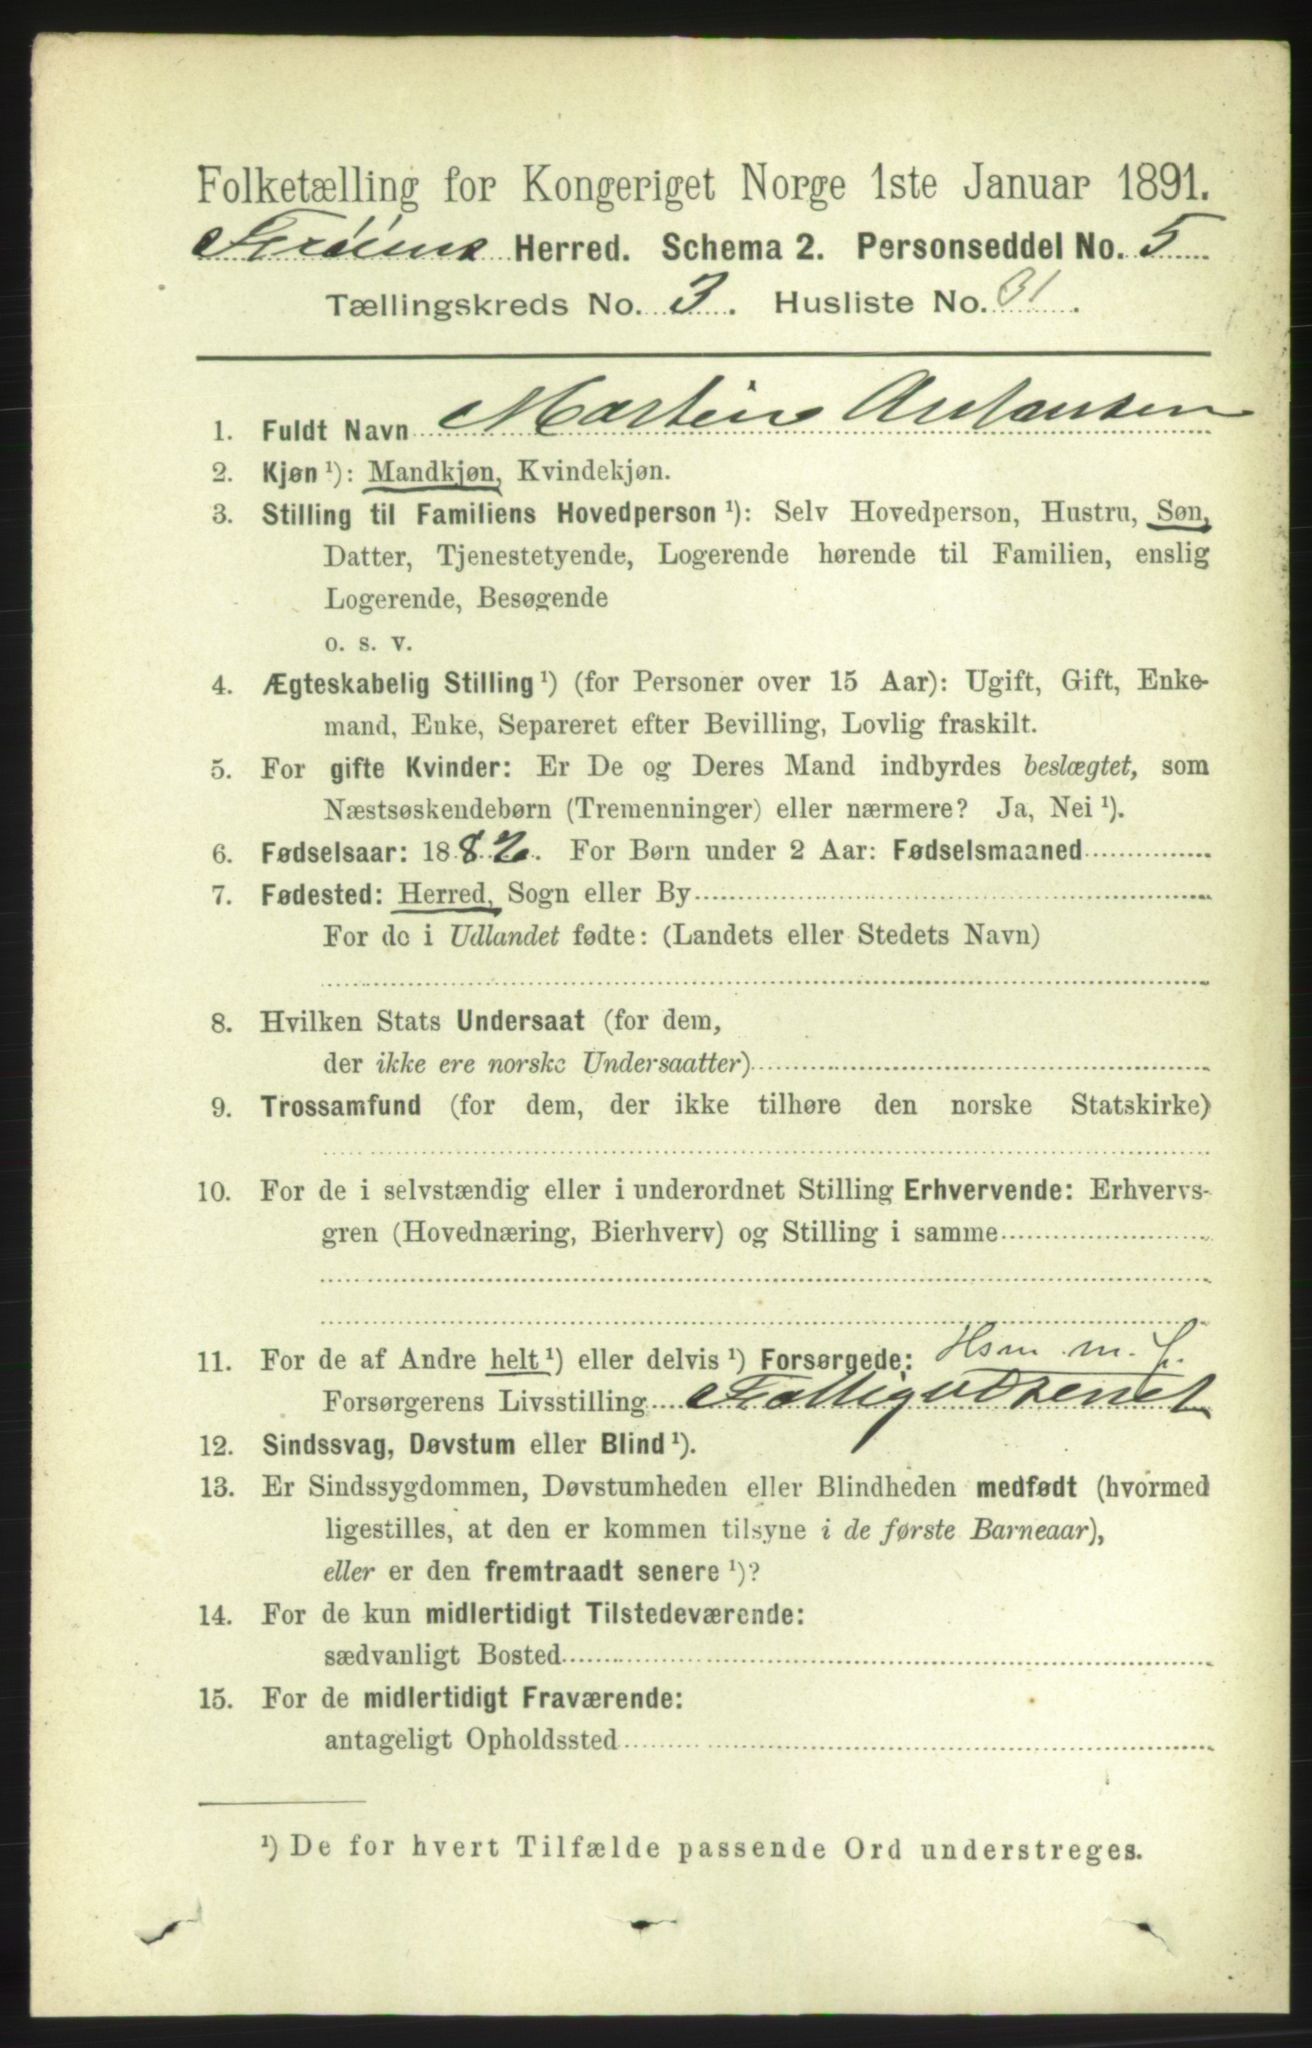 Folketælling for Kongeriget Norge 1ste Januar 1891.
Herred. Schema 2. Personseddel No. 5
Tællingskreds No. 3. Husliste No. 31.
1. Fuldt Navn Martin Antonsen
2. Kjøn ¹): Mandkjøn, Kvindekjøn.
3. Stilling til Familiens Hovedperson ¹): Selv Hovedperson, Hustru, Søn,
Datter, Tjenestetyende, Logerende hørende til Familien, enslig
Logerende, Besøgende
o. s. v.
4. Ægteskabelig Stilling ¹) (for Personer over 15 Aar): Ugift, Gift, Enke-
mand, Enke, Separeret efter Bevilling, Lovlig fraskilt.
5. For gifte Kvinder: Er De og Deres Mand indbyrdes beslægtet, som
Næstsøskendebørn (Tremenninger) eller nærmere? Ja, Nei ¹).
6. Fødselsaar: 1882. For Børn under 2 Aar: Fødselsmaaned
7. Fødested: Herred, Sogn eller By
For de i Udlandet fødte: (Landets eller Stedets Navn)
8. Hvilken Stats Undersaat (for dem,
der ikke ere norske Undersaatter)
9. Trossamfund (for dem, der ikke tilhøre den norske Statskirke)
10. For de i selvstændig eller i underordnet Stilling Erhvervende: Erhvervs-
gren (Hovednæring, Bierhverv) og Stilling i samme
11. For de af Andre helt ¹) eller delvis ¹) Forsørgede: Hsm. m. J.
Forsørgerens Livsstilling
12. Sindssvag, Døvstum eller Blind ¹).
13. Er Sindssygdommen, Døvstumheden eller Blindheden medfødt (hvormed
ligestilles, at den er kommen tilsyne i de første Barneaar),
eller er den fremtraadt senere ¹)?
14. For de kun midlertidigt Tilstedeværende:
sædvanligt Bosted
15. For de midlertidigt Fraværende:
antageligt Opholdssted
¹) De for hvert Tilfælde passende Ord understreges.